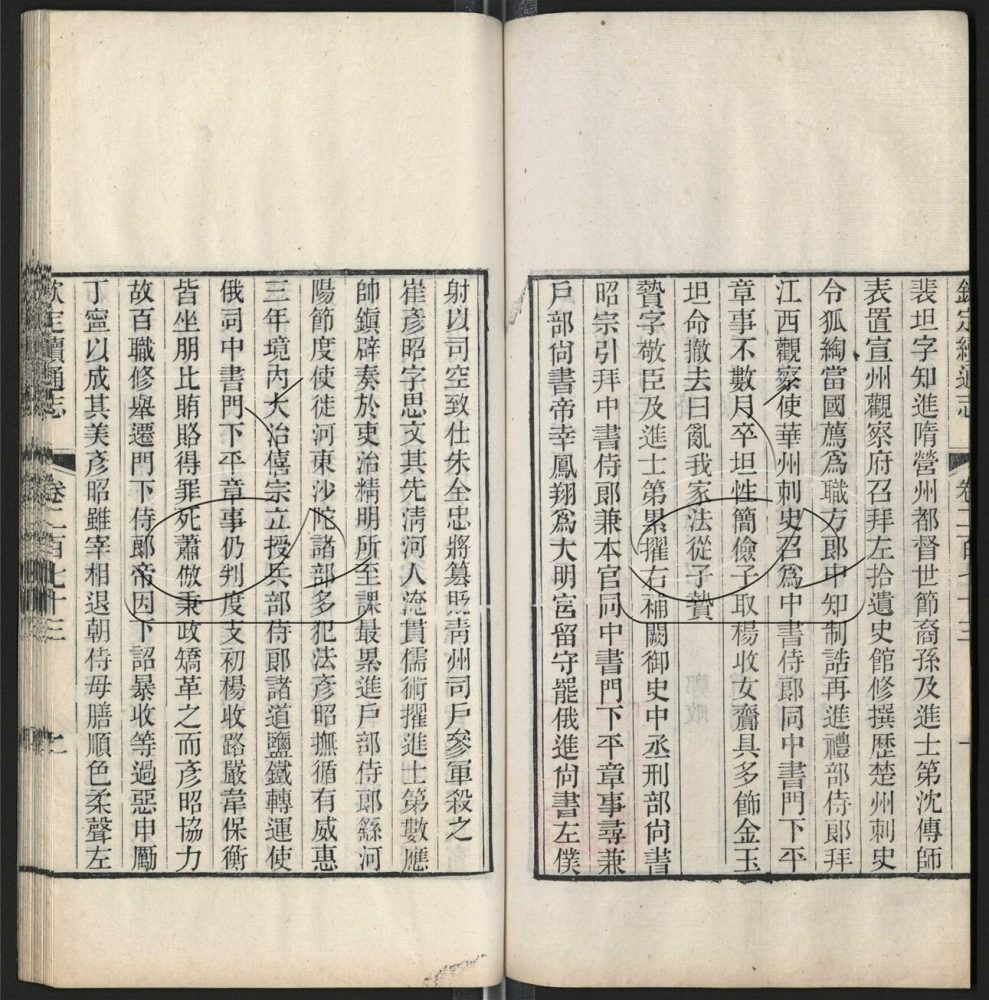 欽定續通志 卷二百七十三 一
裴坦字知進隋營州都督世節裔孫及進士第沈傳師
表置宣州觀察府召拜左拾遺史館修撰歷楚州刺史
令狐綯當國薦爲職方郎中知制誥再進禮部侍郎拜
江西觀察使華州刺史召爲中書侍郎同中書門下平
章事不數月卒坦性簡儉子取楊收女齎具多飾金玉
坦命撤去曰亂我家法從子贄
贄字敬臣及進士第累擢右補闕御史中丞刑部尙書
昭宗引拜中書侍郎兼本官同中書門下平章事尋兼
戸部尙書帝幸鳳翔爲大明宮留守罷俄進尙書左僕
射以司空致仕朱全忠將簒貶靑州司戸參軍殺之
崔彥昭字思文其先淸河人淹貫儒術擢進士第數應
帥鎭辟奏於吏治精明所至課最累進戸部侍郎繇河
陽節度使徙河東沙陀諸部多犯法彥昭撫循有威惠
三年境內大治僖宗立授兵部侍郎諸道鹽鐵轉運使
俄同中書門下平章事仍判度支初楊收路嚴韋保衡
皆坐朋比賄賂得罪死蕭倣秉政矯革之而彥昭協力
故百職修舉遷門下侍郎帝因下詔暴收等過惡申勵
丁寧以成其美彥昭雖宰相退朝侍母膳順色柔聲左
欽定續通志 卷二百七十三 二